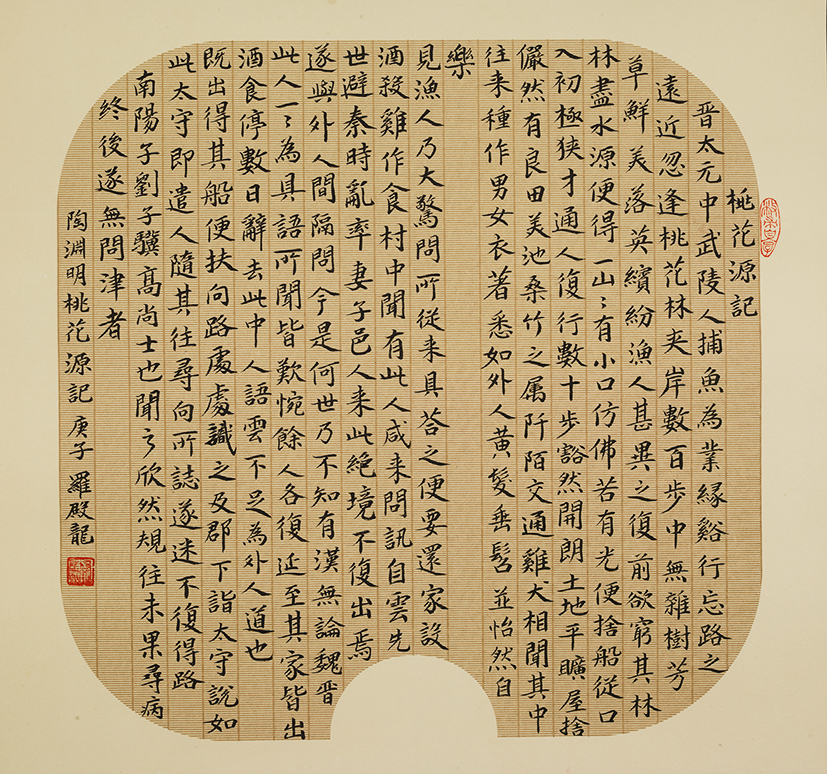 桃花源記
晋太元中武陵人捕魚為業緣谿行忘路之
遠近忽逢桃花林夹岸數百步中無雜樹芳
草鮮美落英繽紛漁人甚異之復前欲窮其林
林盡水源便得一山〻有小口仿佛若有光便捨船從口
入初極狹才通人復行數十步豁然開朗土地平曠屋捨
儼然有良田美池桑竹之属阡陌交通雞犬相聞其中
往来種作男女衣著悉如外人黄髮垂髫並怡然自
樂
見漁人乃大驚問所從来具荅之便要還家設
酒殺雞作食村中聞有此人咸来問訊自雲先
世避秦時亂率妻子邑人来此絶境不復出焉
遂與外人間隔問今是何世乃不知有漢無論魏晋
此人一〻為具語所聞皆歎惋餘人各復延至其家皆出
酒食停數日辭去此中人語雲不足為外人道也
既出得其船便扶向路處處識之及郡下詣太守說如
此太守即遣人隨其往尋向所誌遂迷不復得路
南陽子劉子驥高尚士也聞之欣然規往未果尋病
終後遂無問津者
陶淵明桃花源記 庚子 羅殿龍